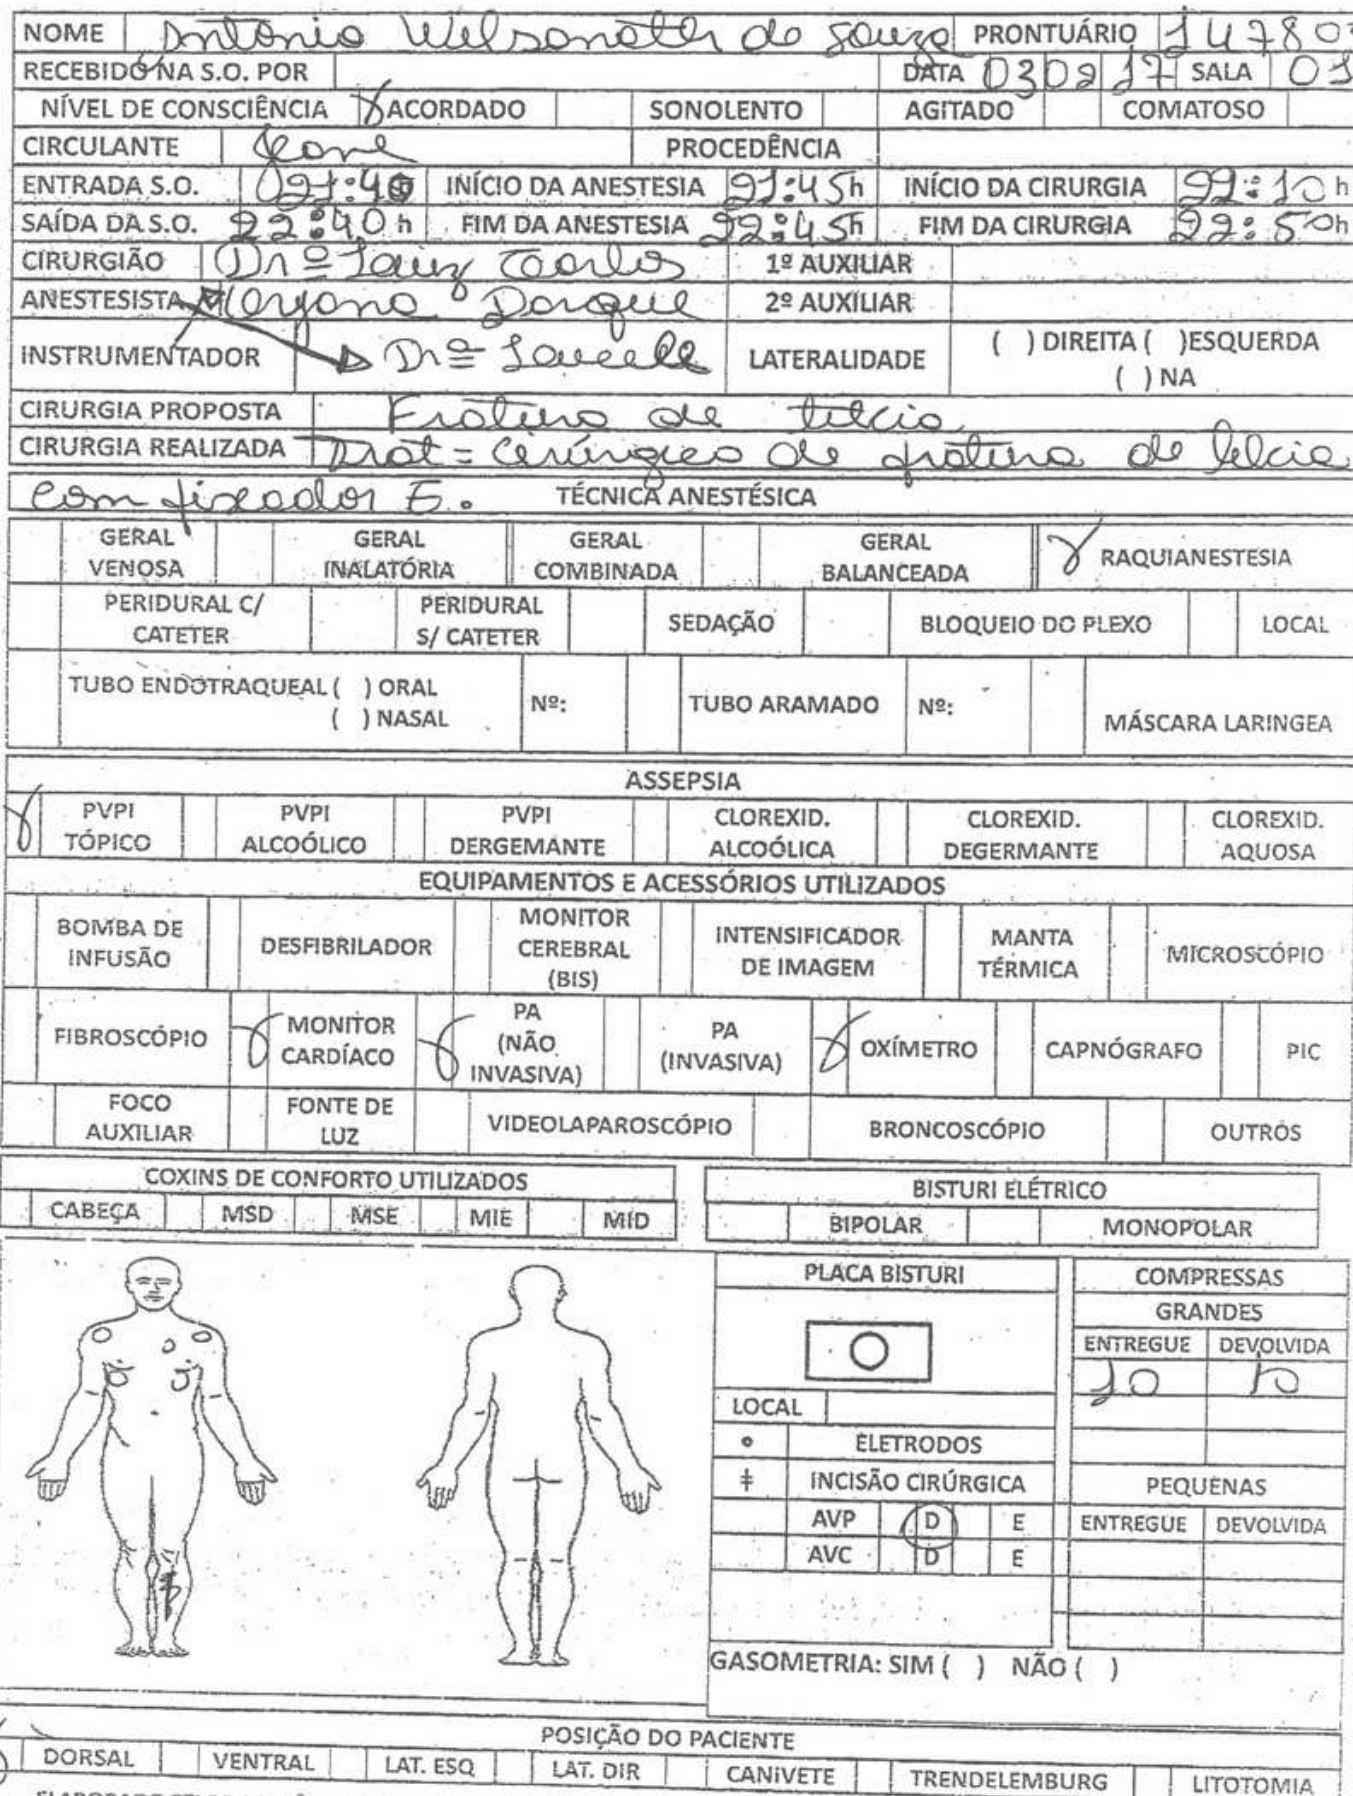 NOME Antonio de Souza PRONTUÁRIO 14780
RECEBIDO NA S.O. POR DATA 03 09 17 SALA 01
NÍVEL DE CONSCIÊNCIA X ACORDADO SONOLENTO AGITADO COMATOSO
CIRCULANTE PROCEDÊNCIA
ENTRADA S.O. 21:40 INÍCIO DA ANESTESIA 21:45h INÍCIO DA CIRURGIA 22:10h
SAÍDA DA S.O. 22:40h FIM DA ANESTESIA 22:45h FIM DA CIRURGIA 22:50h
CIRURGIÃO Drº Luiz Carlos 1º AUXILIAR
ANESTESISTA 2º AUXILIAR
INSTRUMENTADOR Drª LATERALIDADE ( ) DIREITA ( )ESQUERDA
( ) NA
CIRURGIA PROPOSTA Fratura de tibia
CIRURGIA REALIZADA Trat= Cirúrgico de fratura de tibia
com fixador E. TÉCNICA ANESTÉSICA
GERAL VENOSA GERAL INALATÓRIA GERAL COMBINADA GERAL BALANCEADA X RAQUIANESTESIA
PERIDURAL C/ CATETER PERIDURAL S/ CATETER SEDAÇÃO BLOQUEIO DO PLEXO LOCAL
TUBO ENDOTRAQUEAL ( ) ORAL
( ) NASAL Nº: TUBO ARAMADO Nº: MÁSCARA LARINGEA
ASSEPSIA
X PVPI TÓPICO PVPI ALCOÓLICO PVPI DERGEMANTE CLOREXID. ALCOÓLICA CLOREXID. DEGERMANTE CLOREXID. AQUOSA
EQUIPAMENTOS E ACESSÓRIOS UTILIZADOS
BOMBA DE INFUSÃO DESFIBRILADOR MONITOR CEREBRAL (BIS) INTENSIFICADOR DE IMAGEM MANTA TÉRMICA MICROSCÓPIO
FIBROSCÓPIO X MONITOR CARDÍACO X PA (NÃO INVASIVA) PA (INVASIVA) X OXÍMETRO CAPNÓGRAFO PIC
FOCO AUXILIAR FONTE DE LUZ VIDEOLAPAROSCÓPIO BRONCOSCÓPIO OUTROS
COXINS DE CONFORTO UTILIZADOS
CABEÇA MSD MSE MIE MID
BISTURI ELÉTRICO
BIPOLAR MONOPOLAR
PLACA BISTURI
LOCAL
ELETRODOS
‡ INCISÃO CIRÚRGICA
AVP D E
AVC D E
COMPRESSAS
GRANDES
ENTREGUE DEVOLVIDA
10 10
PEQUENAS
ENTREGUE DEVOLVIDA
GASOMETRIA: SIM ( ) NÃO ( )
POSIÇÃO DO PACIENTE
X DORSAL VENTRAL LAT. ESQ LAT. DIR CANIVETE TRENDELEMBURG LITOTOMIA